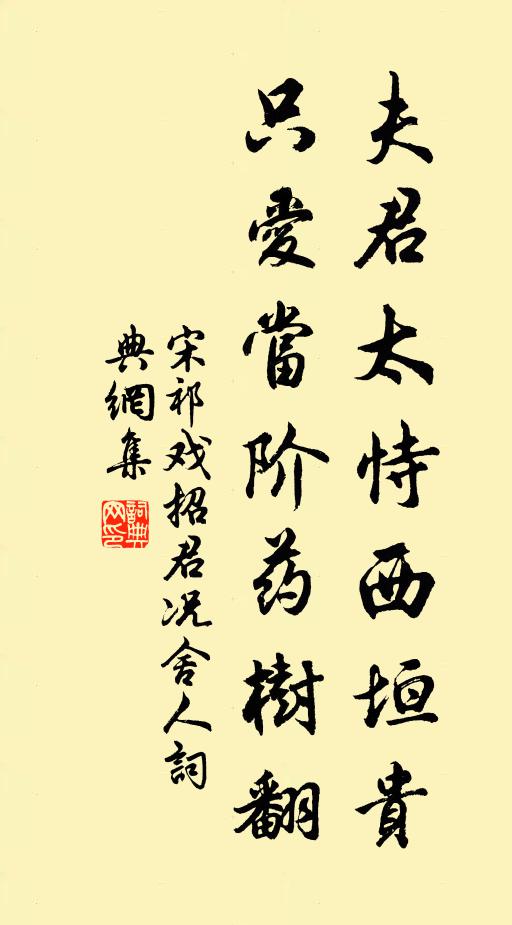 夫君太恃西垣貴
只愛當阶药樹翻
宋祁戏招君况舍人詞
典網集
詞典网印